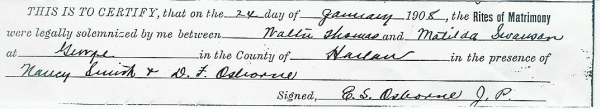 THIS IS TO CERTIFY, that on the 24 day of January 1908, the Rites of Matrimony
were legally solemnized by me between Walter Thomas and Matilda Swanson
at George in the County of Harlan in the presence of
Nancy Smith & D. F. Osborne
Signed, E. S. Osborne J. P.